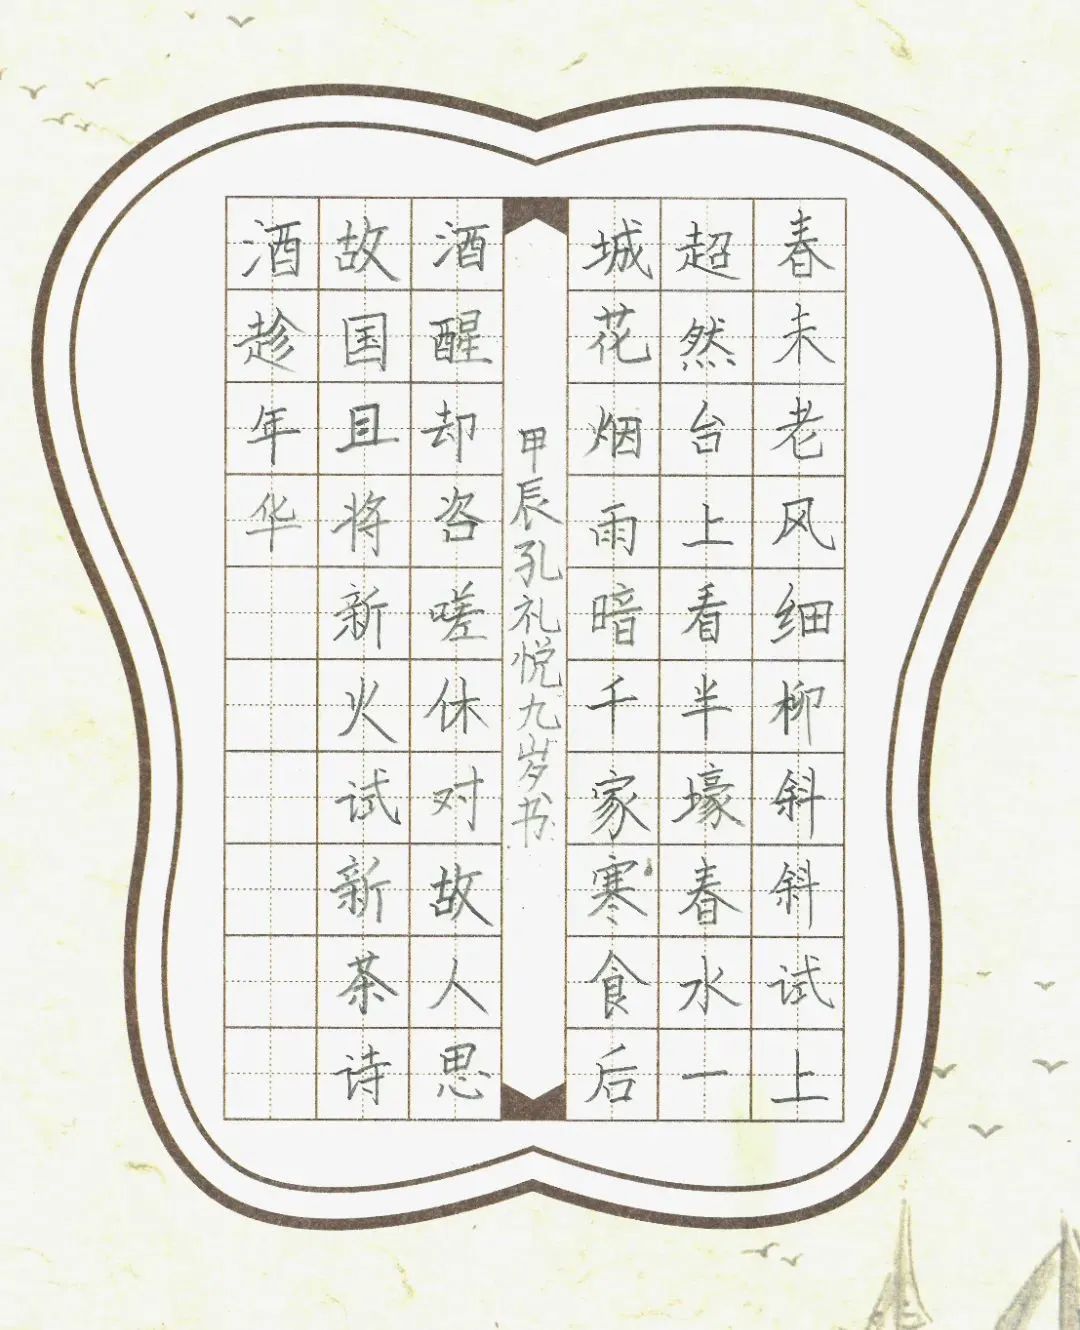 春未老风细柳斜斜试上
超然台上看半壕春水一
城花烟雨暗千家寒食后
酒醒却咨嗟休对故人思
故国且将新火试新茶诗
酒趁年华
甲辰孔礼悦九岁书